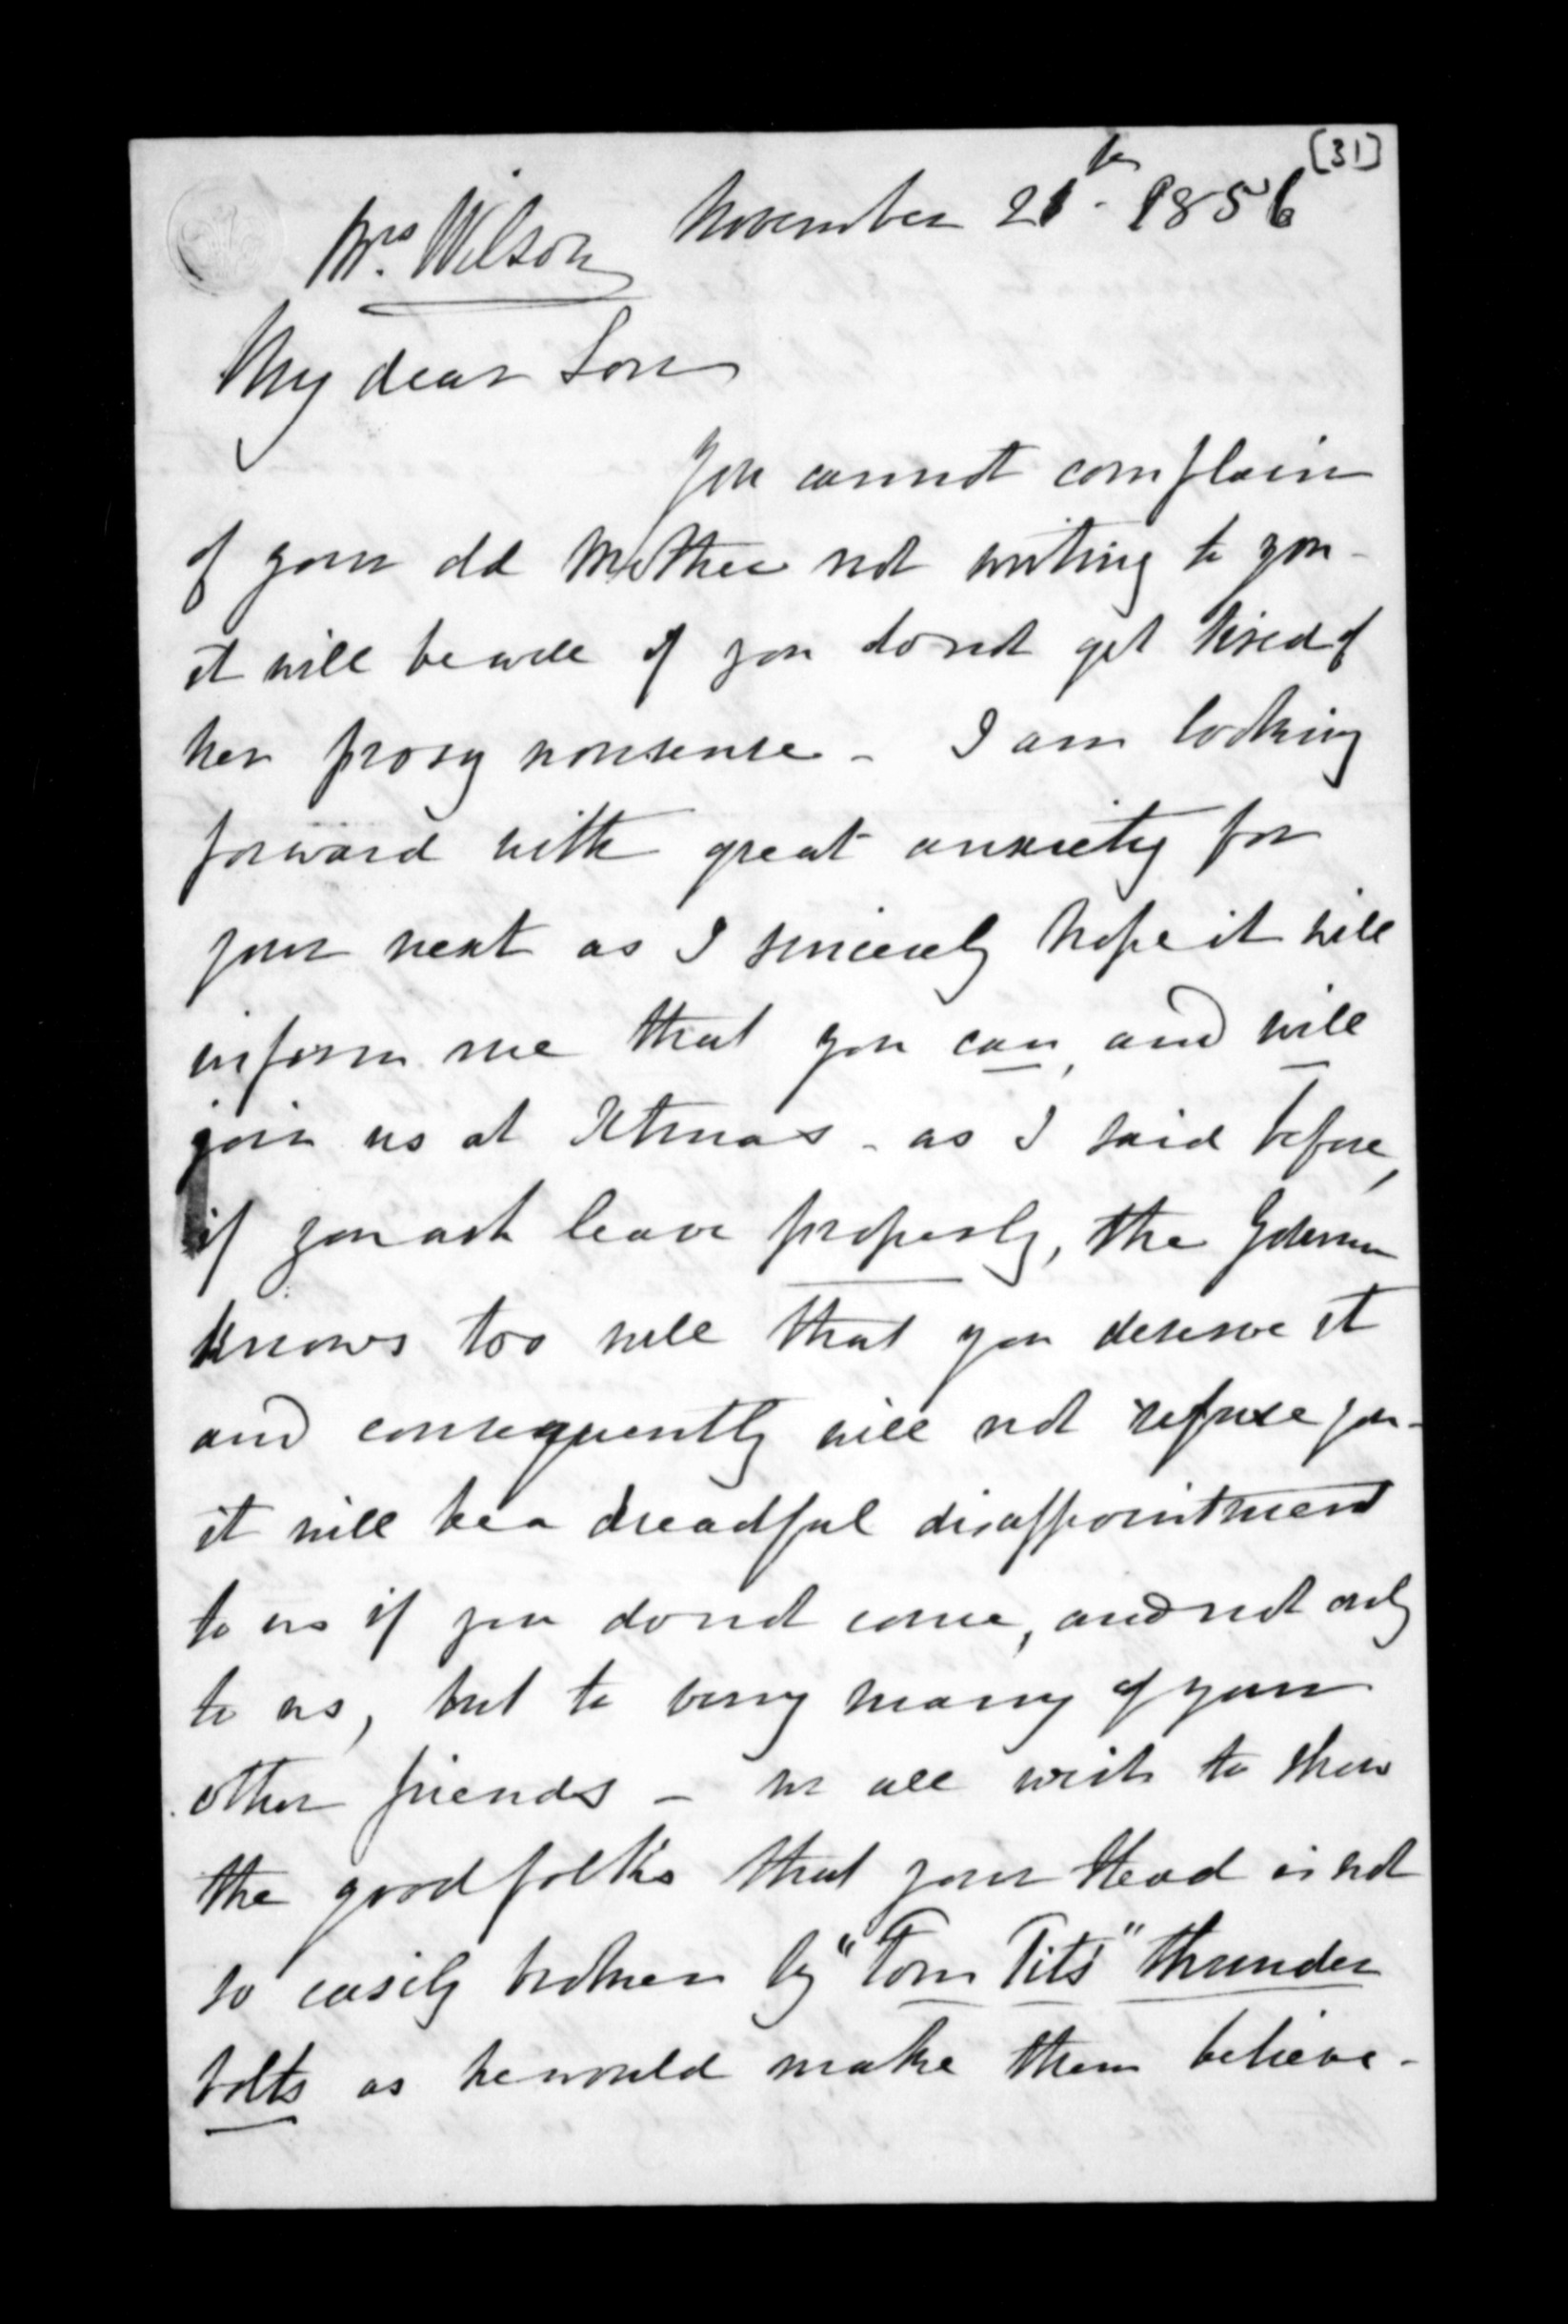 [31]
November 21st 1856
Mrs. Wilson
My dear Son
You cannot complain
of your old Mother not writing to you -
it will be well if you do not get tired of
her prosy nonsense - I am looking
forward with great anxiety for
your next as I sincerely hope it will
inform me that you can, and will
join us at Xtmas - as I said before,
if you ask leave properly, the Governor
knows too well that you deserve it
and consequently will not refuse you -
it will be a dreadful disappointment
to us if you do not come, and not only
to us, but to very many of your
other friends - we all wish to shew
the good folks that your Head is not
so easily broken by "Tom Tits" thunder
bolts as he would make them believe -